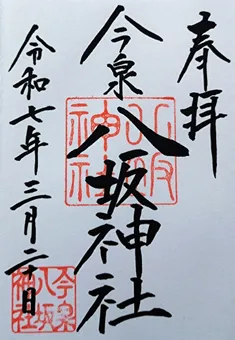 奉拝
今泉
八坂神社
令和七年三月二十日
八坂神社
今泉八坂神社